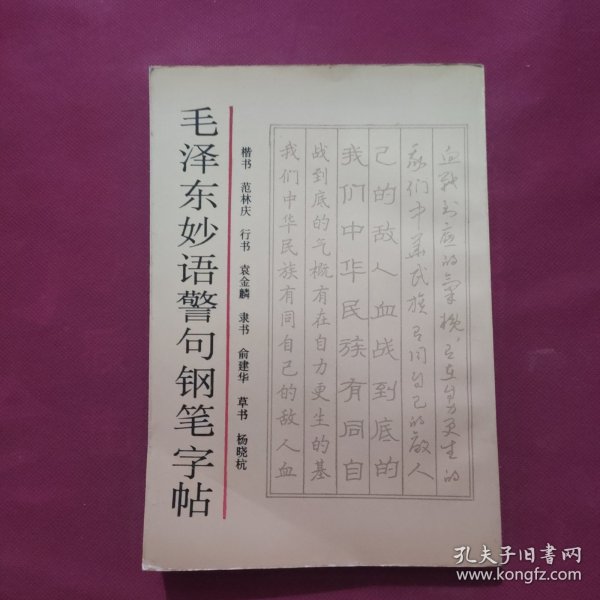 毛泽东妙语警句钢笔字帖
楷书 范林庆 行书 袁金麟 隶书 俞建华 草书 杨晓杭
我们中华民族有同自己的敌人血
战到底的气概有在自力更生的基
我们中华民族有同自
己的敌人血战到底的
我们中华民族有同自己的敌人
血战到底的气概，有在自力更生的
孔夫子旧书网
www.kongfz.com